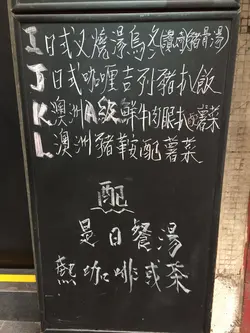 I 日式叉燒湯烏冬(讚岐豬骨湯)
J 日式咖喱吉列豬扒飯
K 澳洲A級鮮牛肉服扒配薯菜
L 澳洲豬鞍配薯菜
配
是日餐湯
熱咖啡或茶